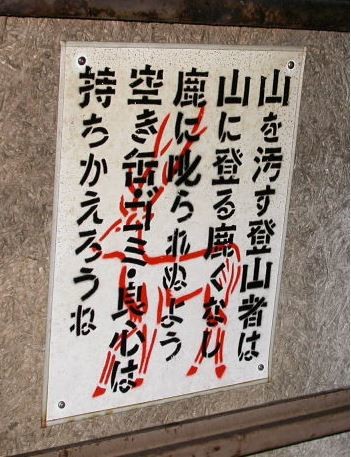 山を汚す登山者は
山に登る鹿ぐなし
鹿に叱られぬよう
空き缶・ゴミ・良心は
持ちかえろうね